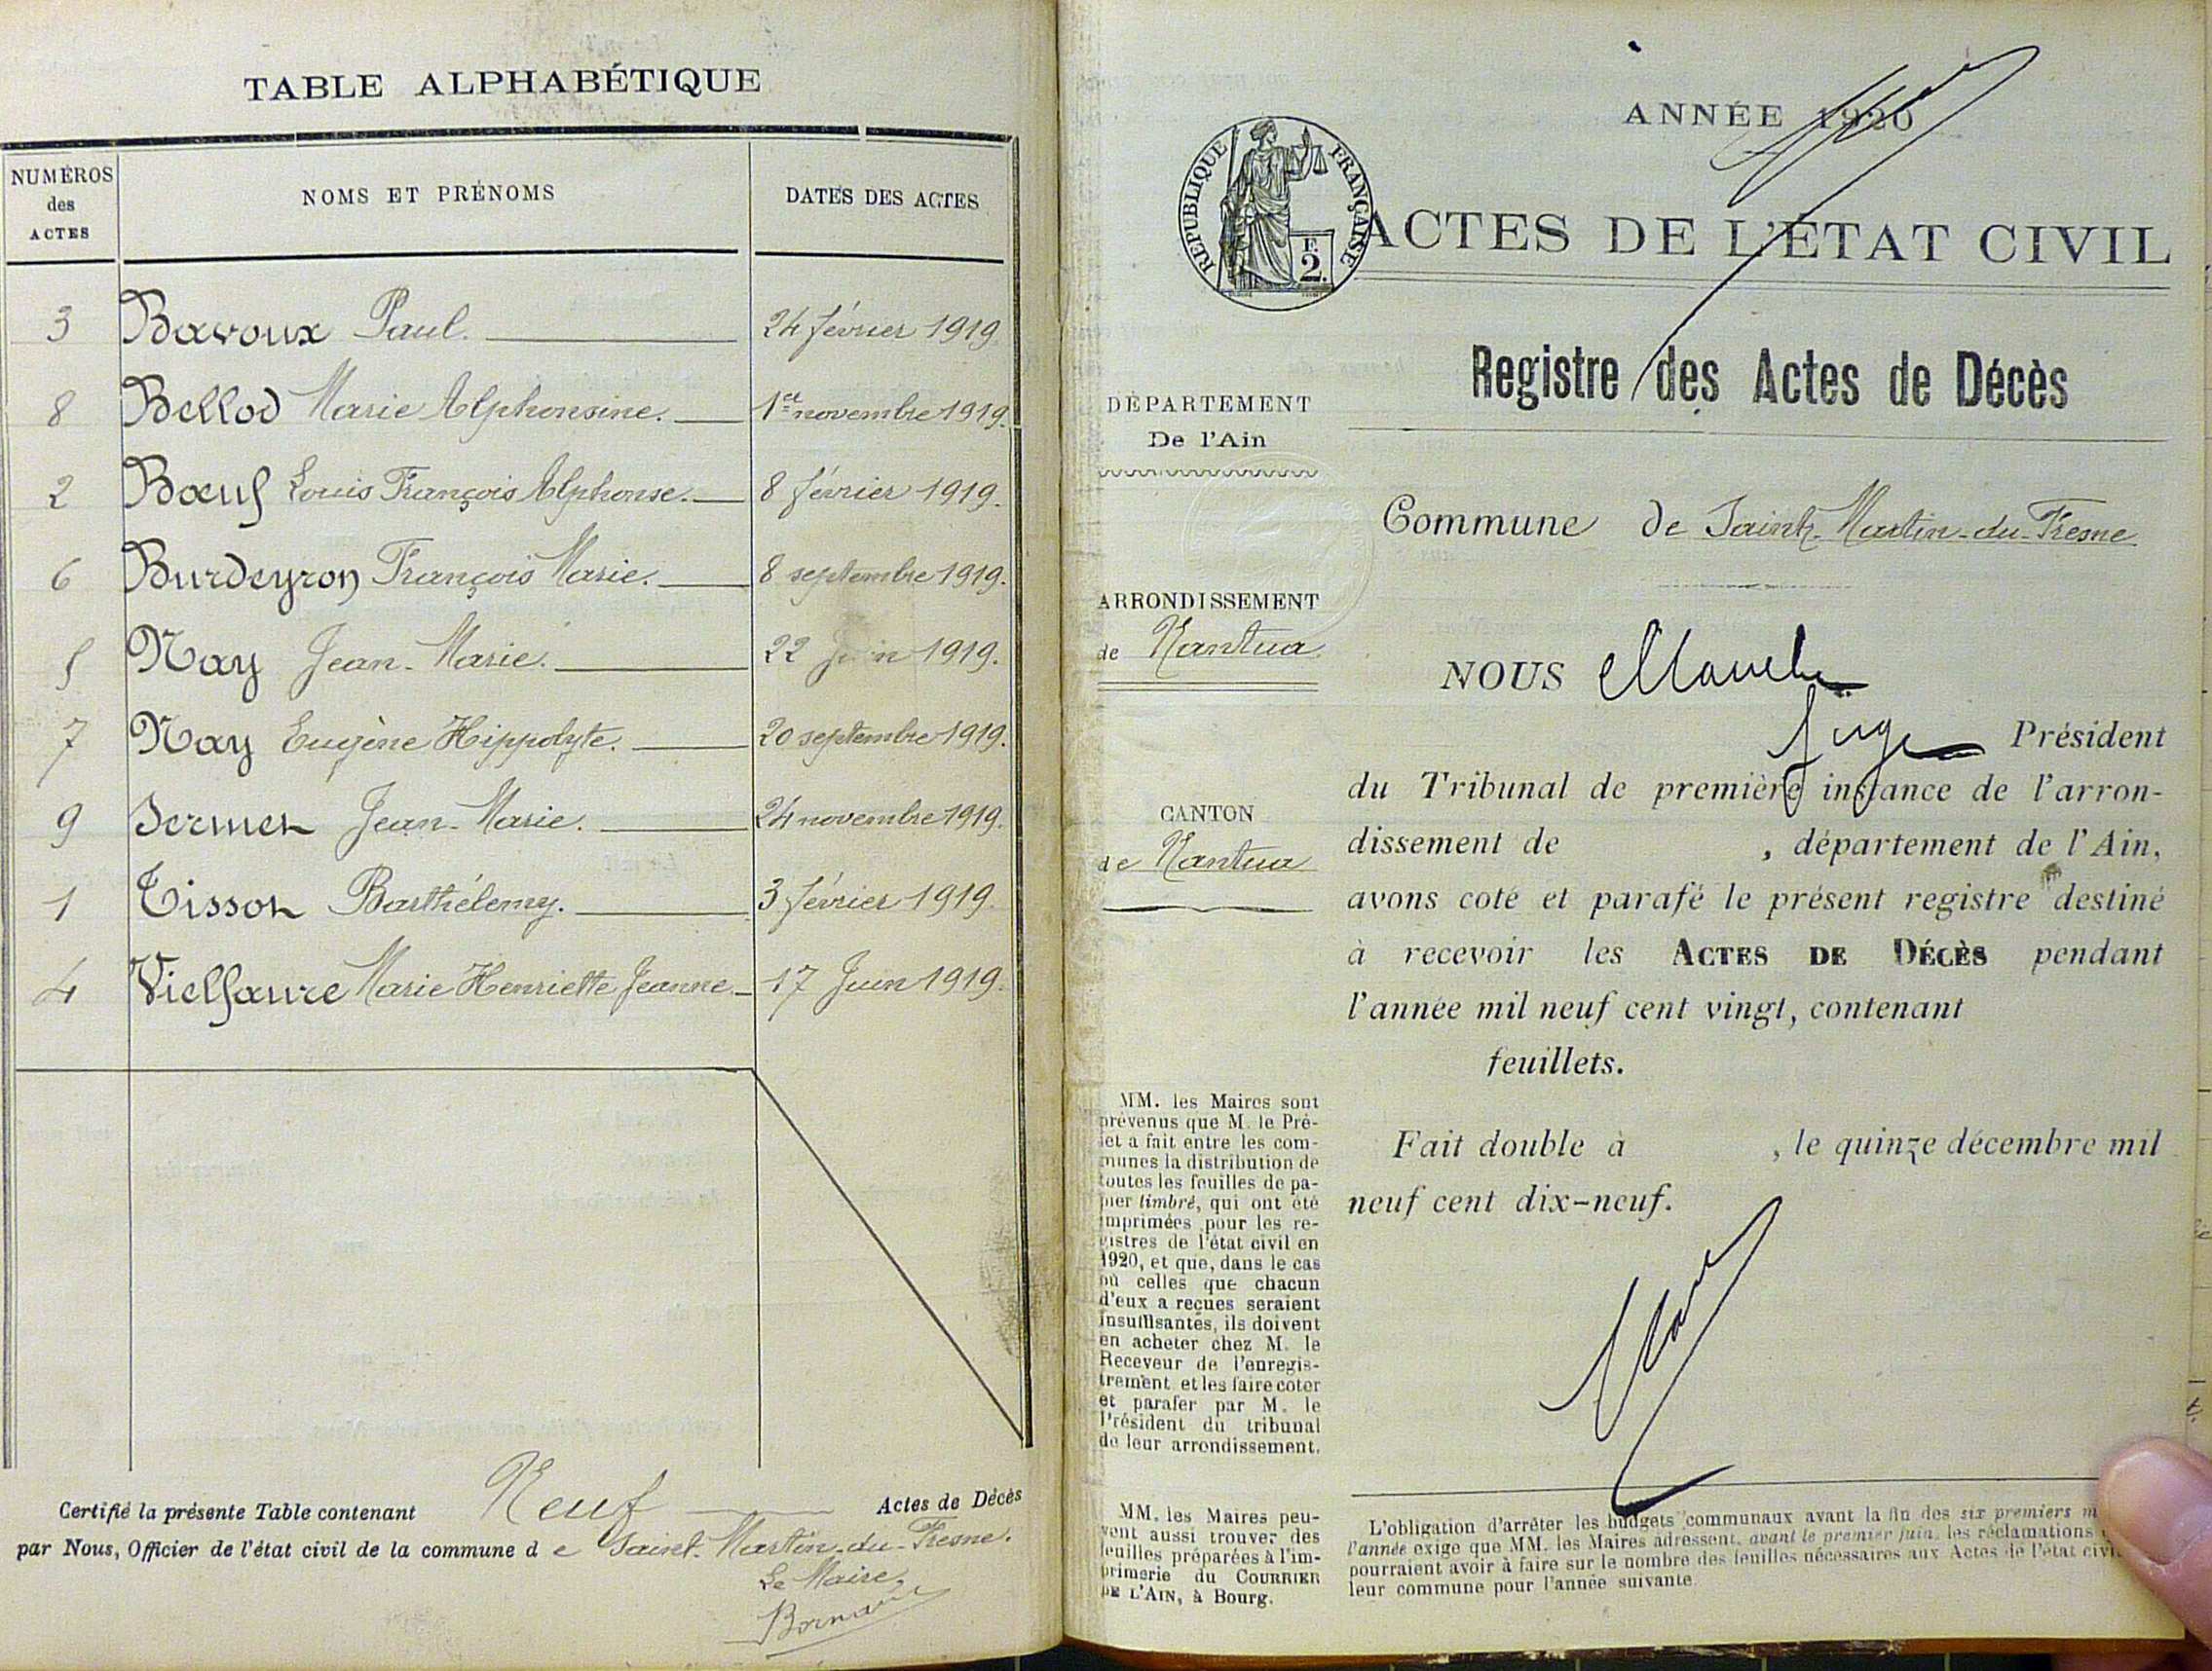 TABLE ALPHABÉTIQUE
NUMÉROS des ACTES
NOMS ET PRÉNOMS
DATES DES ACTES
3 Bavoux Paul. 24 février 1919.
8 Bellod Marie Alphonsine. 1er novembre 1919.
2 Bœuf Louis François Alphonse. 8 février 1919.
6 Burdeyron François Marie. 8 septembre 1919.
5 Nay Jean-Marie. 22 Juin 1919.
7 Nay Eugène Hippolyte. 20 septembre 1919.
9 Sermet Jean-Marie. 24 novembre 1919.
1 Tissot Barthélemy. 3 février 1919.
4 Vielfaure Marie Henriette Jeanne 17 Juin 1919.
Certifié la présente Table contenant Neuf Actes de Décès
par Nous, Officier de l'état civil de la commune de Saint-Martin-du-Fresne.
Le Maire,
ANNÉE 1920
RÉPUBLIQUE FRANÇAISE
F. 2.
ACTES DE L'ÉTAT CIVIL
Registre des Actes de Décès
DÉPARTEMENT
De l'Ain
Commune de Saint-Martin-du-Fresne
ARRONDISSEMENT
de Nantua
CANTON
de Nantua
NOUS
Juge Président
du Tribunal de première instance de l'arron-
dissement de , département de l'Ain,
avons coté et parafé le présent registre destiné
à recevoir les ACTES DE DÉCÈS pendant
l'année mil neuf cent vingt, contenant
feuillets.
Fait double à , le quinze décembre mil
neuf cent dix-neuf.
MM. les Maires sont
prévenus que M. le Pré-
fet a fait entre les com-
munes la distribution de
toutes les feuilles de pa-
pier timbré, qui ont été
imprimées pour les re-
gistres de l'état civil en
1920, et que, dans le cas
où celles que chacun
d'eux a reçues seraient
insuffisantes, ils doivent
en acheter chez M. le
Receveur de l'enregis-
trement et les faire coter
et parafer par M. le
Président du tribunal
de leur arrondissement.
MM. les Maires peu-
vent aussi trouver des
feuilles préparées à l'im-
primerie du COURRIER
DE L'AIN, à Bourg.
L'obligation d'arrêter les budgets communaux avant la fin des six premiers m
l'année exige que MM. les Maires adressent, avant le premier juin, les réclamations
pourraient avoir à faire sur le nombre des feuilles nécessaires aux Actes de l'état civi
leur commune pour l'année suivante.